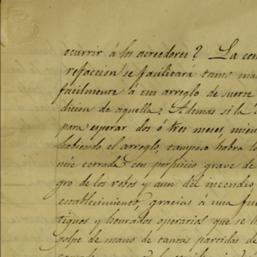 ocurrir á los acreedores? La con
refaccion se facilitará tanto ma
facilmente á un arreglo de suerte
dicion de aquella? Además si la
para esperar dos ó tres meses, mien
habiendo el arreglo, tampoco habra lo
nie cerrada con perjuicio grave de
gro de los robos y aun del incendio,
establecimiento, gracias á una fue
tiguos y honrados operarios que se
golpe de mano de tantas partidas de